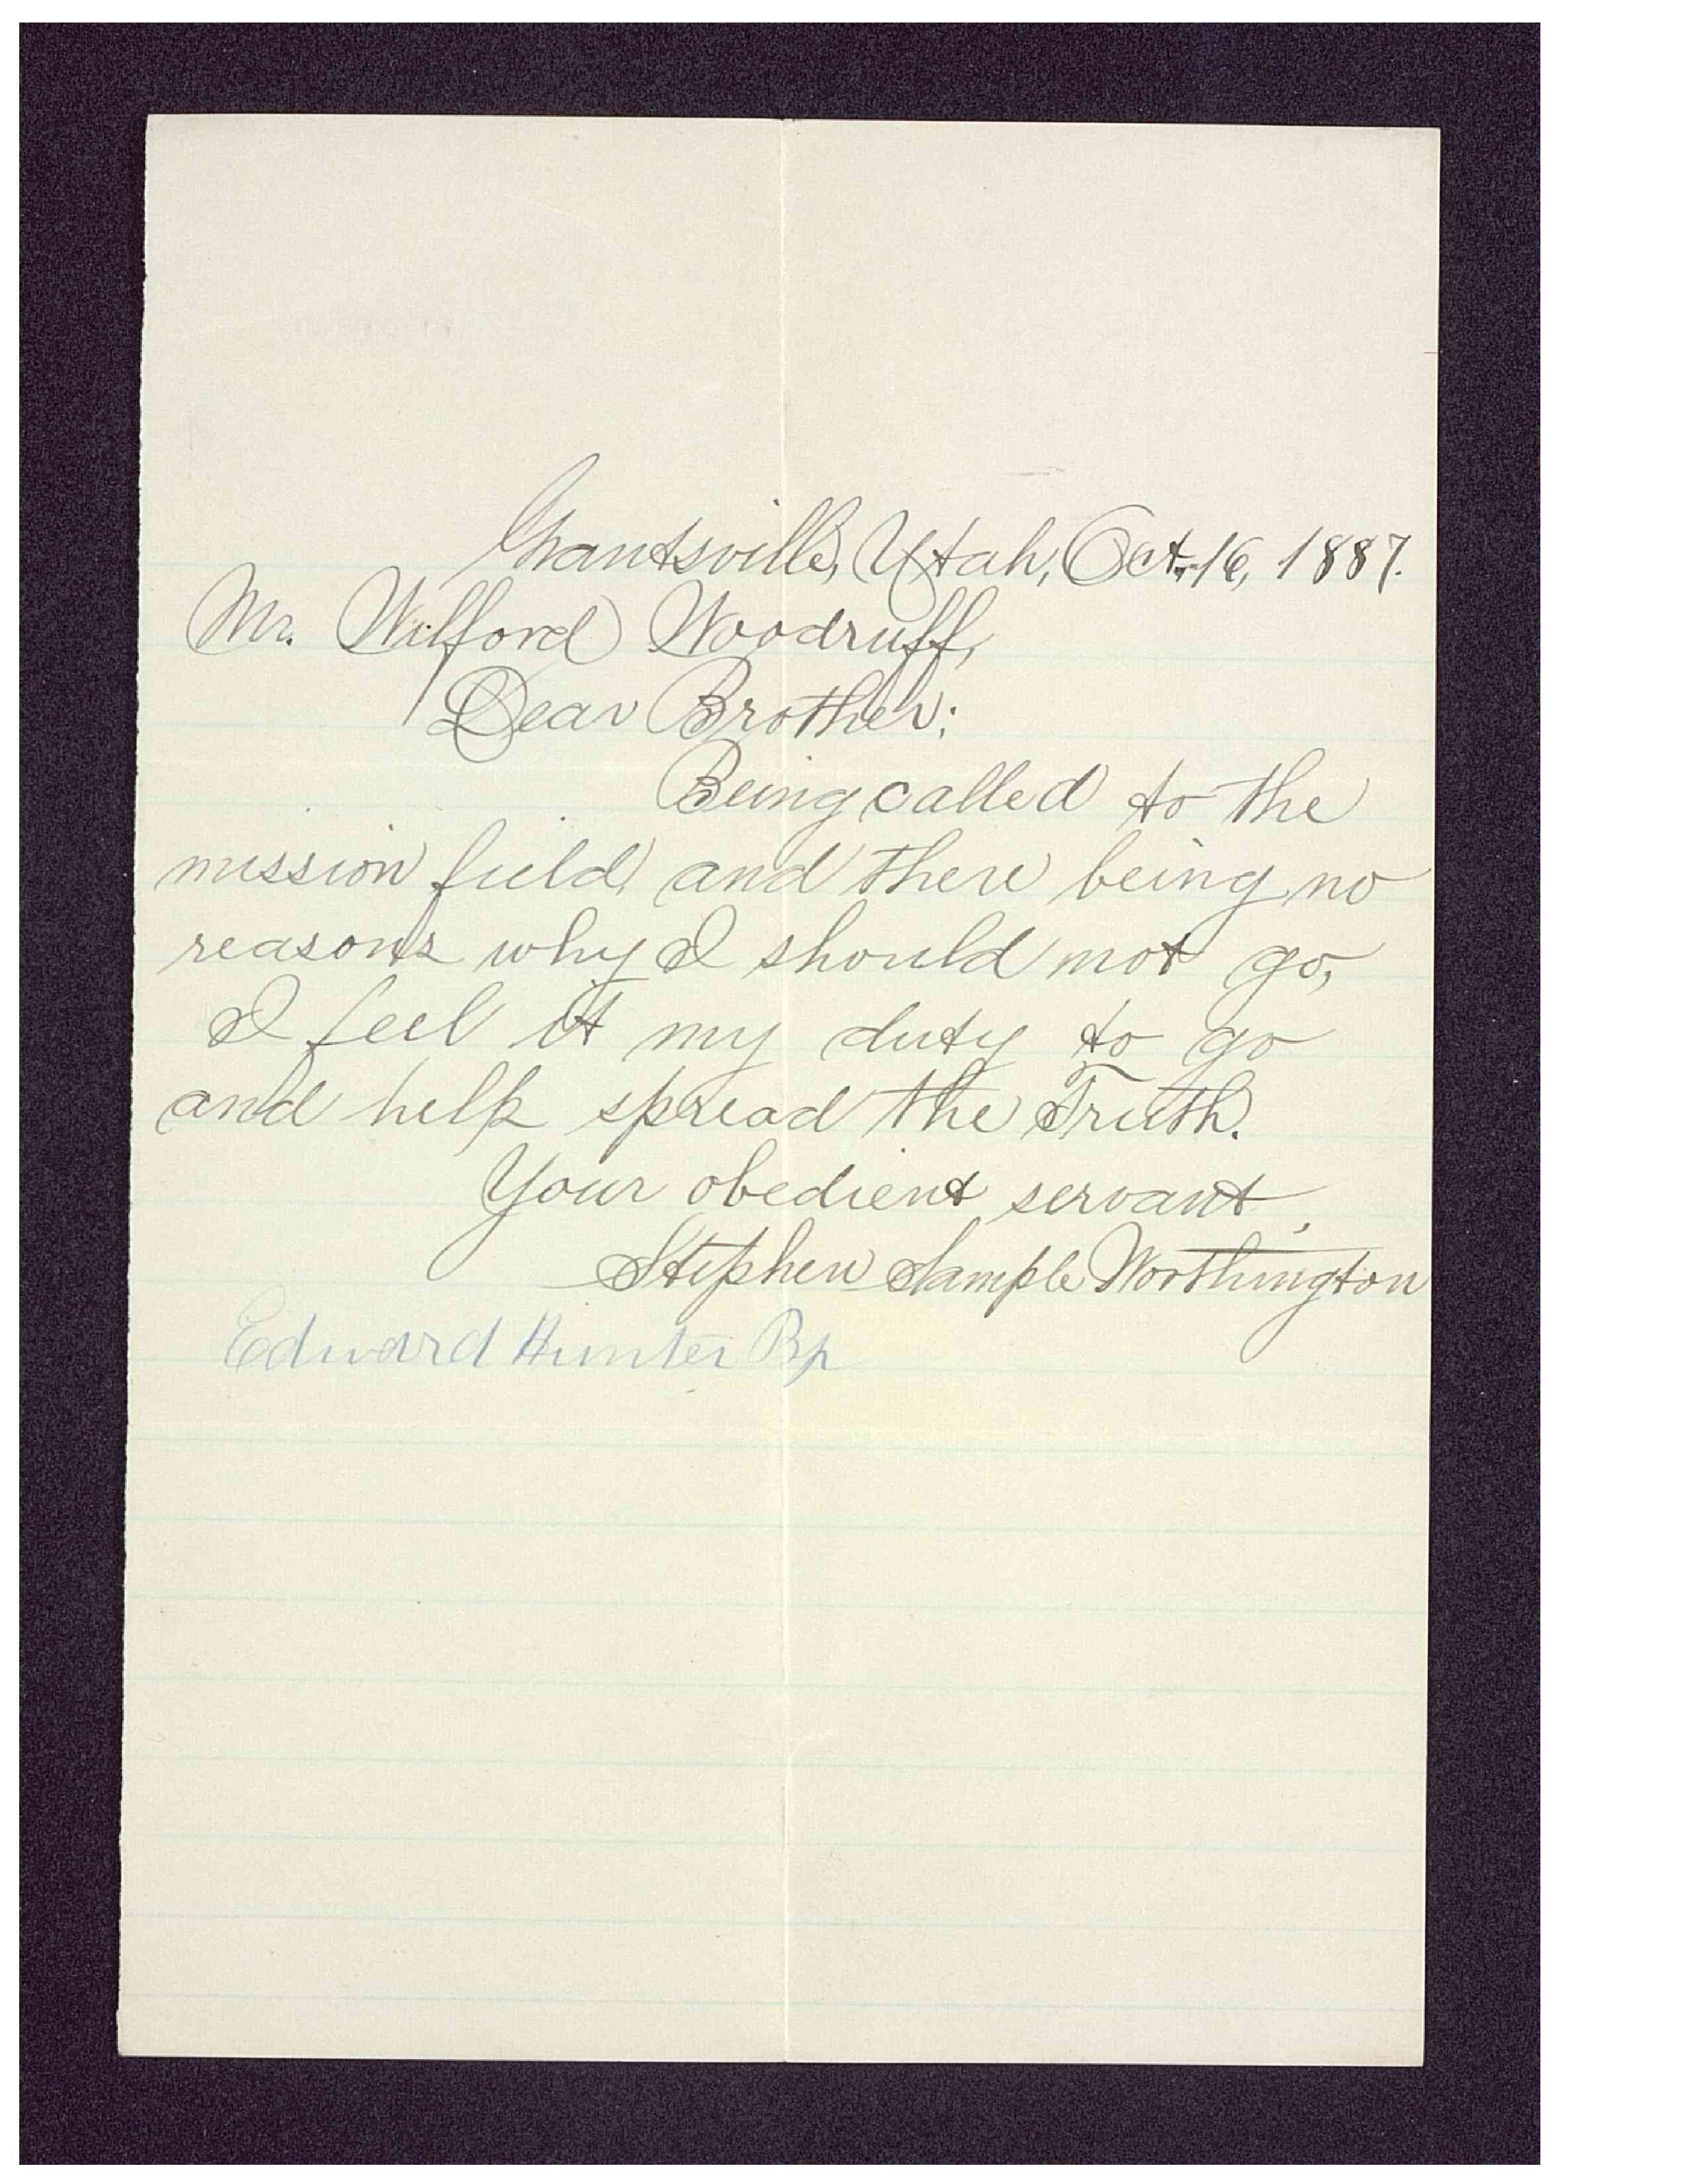 Grantsville, Utah, Oct. 16, 1887.
Mr. Wilford Woodruff,
Dear Brother:
Being called to the
mission field, and there being no
reasons why I should not go,
I feel it my duty to go
and help spread the Truth.
Your obedient servant,
Stephen Sample Worthington
Edward Hunter Bp